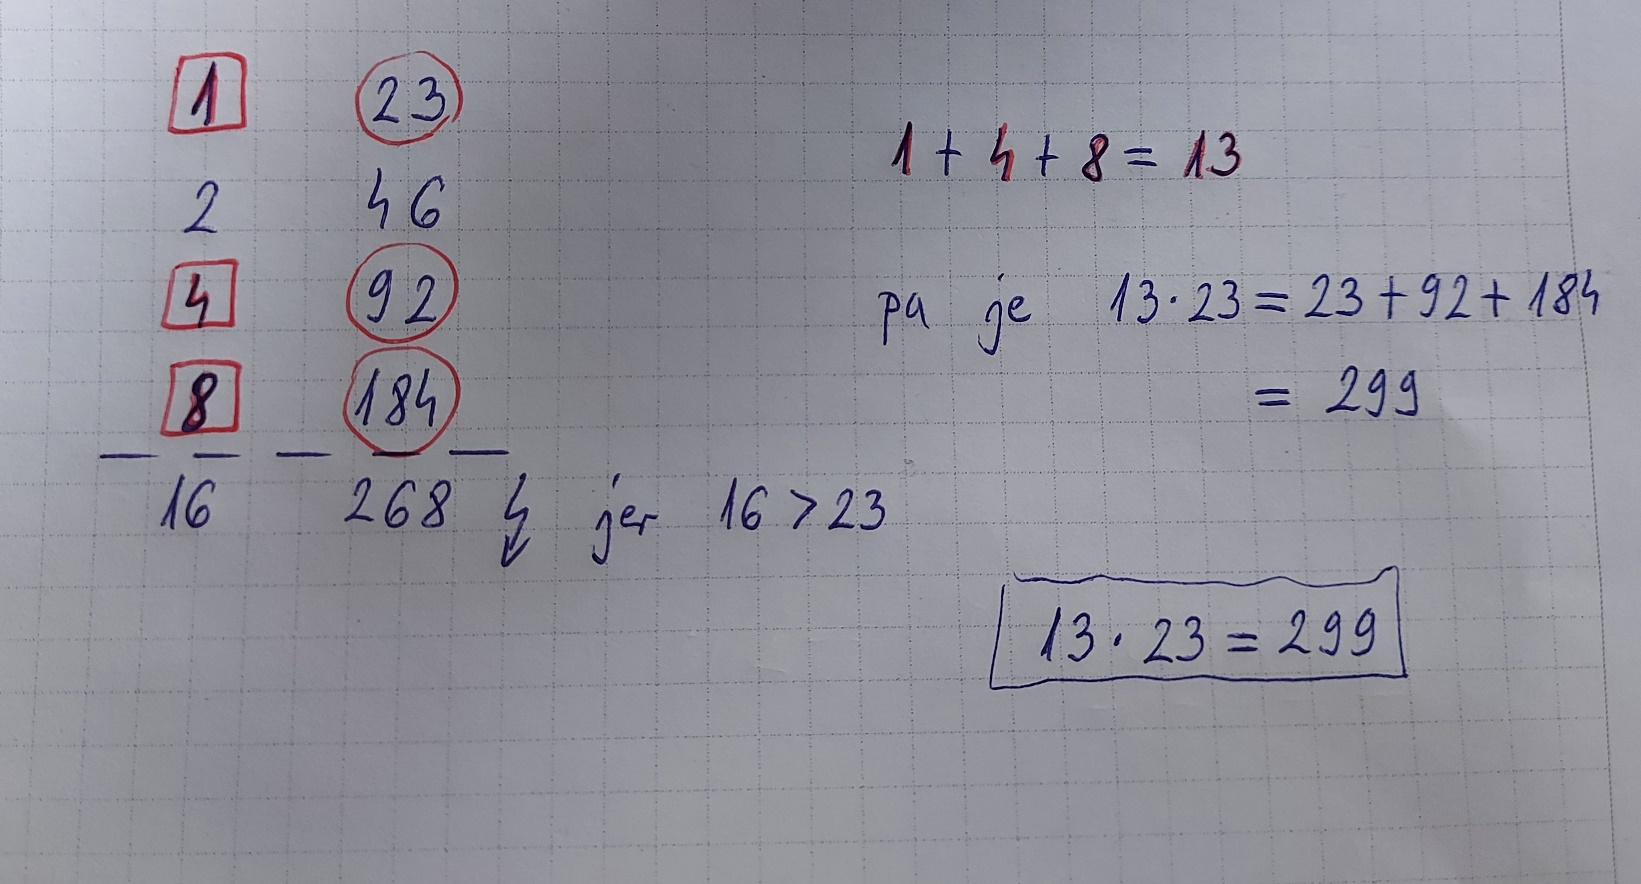 1 23
2 46
4 92
8 184
16 268 jer 16 > 23
1 + 4 + 8 = 13
pa je 13 · 23 = 23 + 92 + 184
= 299
13 · 23 = 299